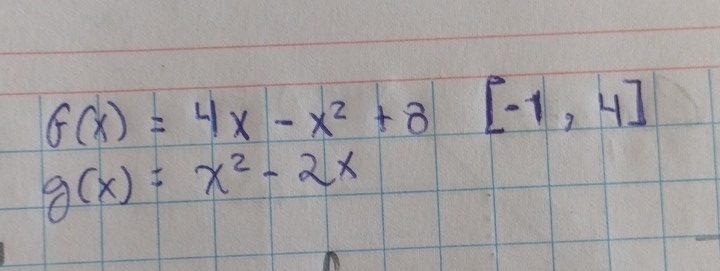 f(x) = 4x - x² + 8 [-1, 4]
g(x) = x² - 2x